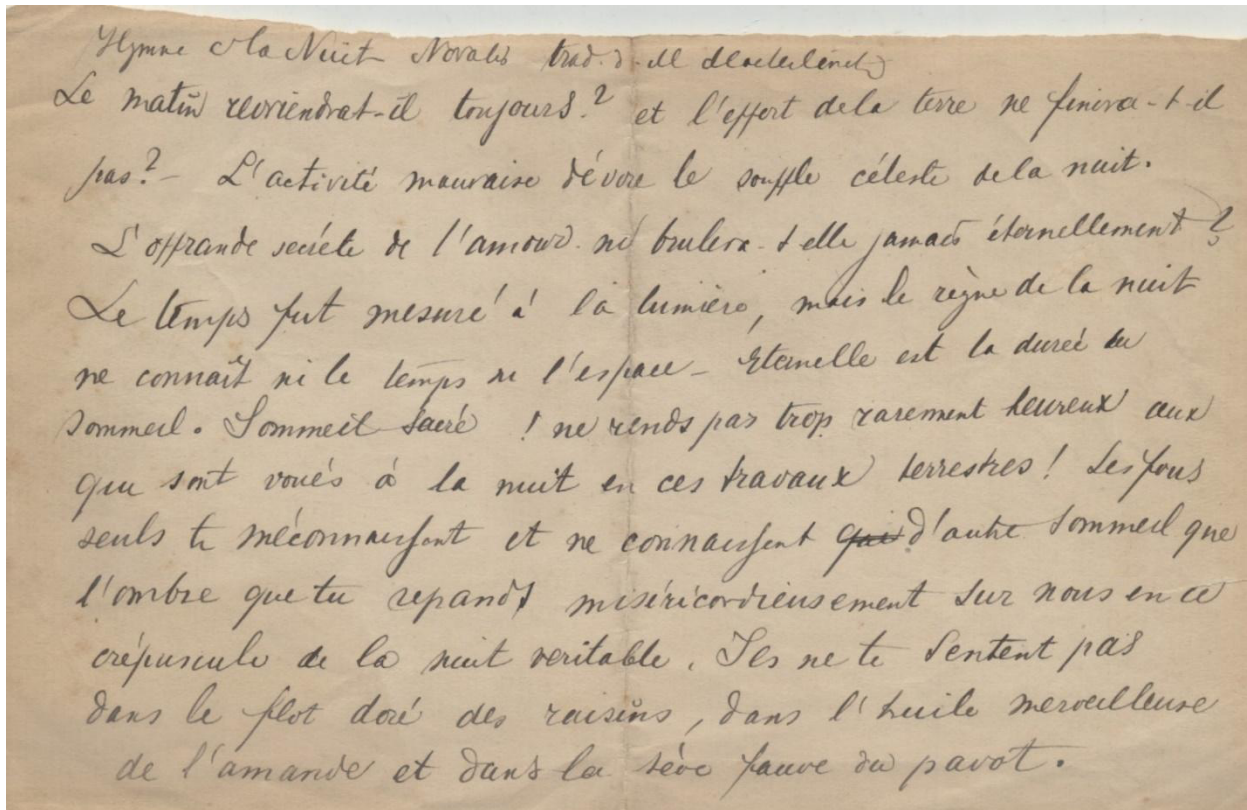 Hymne à la Nuit Novalis trad. d. M Maeterlinck
Le matin reviendrat-il toujours? et l'effort de la terre ne finira-t-il
pas? - L'activité mauvaise dévore le souffle céleste de la nuit.
L'offrande secrète de l'amour ne brulera-t elle jamais éternellement?
Le temps fut mesuré à la lumière, mais le règne de la nuit
ne connaît ni le temps ni l'espace - Eternelle est la durée du
sommeil. Sommeil sacré ! ne rends pas trop rarement heureux ceux
qui sont voués à la nuit en ces travaux terrestres! Les fous
seuls te méconnaissent et ne connaissent que d'autre sommeil que
l'ombre que tu repands miséricordieusement sur nous en ce
crépuscule de la nuit veritable. Ils ne te sentent pas
dans le flot doré des raisins, dans l'huile merveilleuse
de l'amande et dans la sève fauve du pavot.